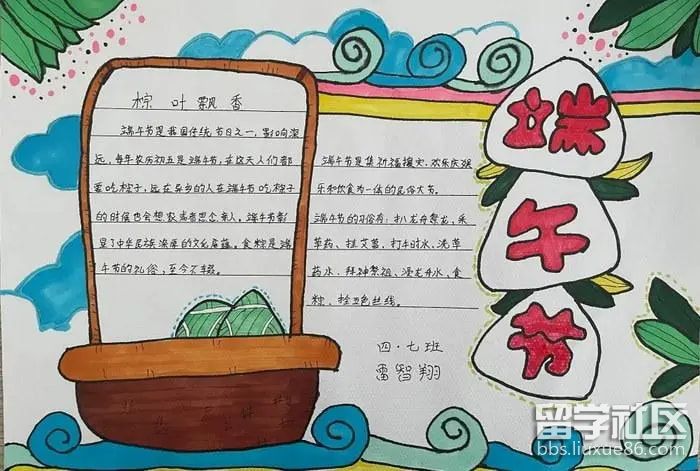 粽叶飘香
端午节是我国传统节日之一，影响深
远，每年农历初五是端午节，在这天人们都
要吃粽子，远在异乡的人在端午节吃粽子
的时候也会想家或者思念亲人。端午节彰
显了中华民族深厚的文化底蕴。食粽是端
午节的礼俗，至今不辍。
端午节是集祈福攘灾、欢乐庆娱
乐和饮食为一体的民俗大节。
端午节的习俗有：扒龙舟祭龙，采
草药、挂艾蒿、打午时水、洗草
药水、拜神祭祖、浸龙舟水、食
粽、拴五色丝线。
四·七班
雷智翔
端
午
节
留学社区
bbs.liuxue86.com